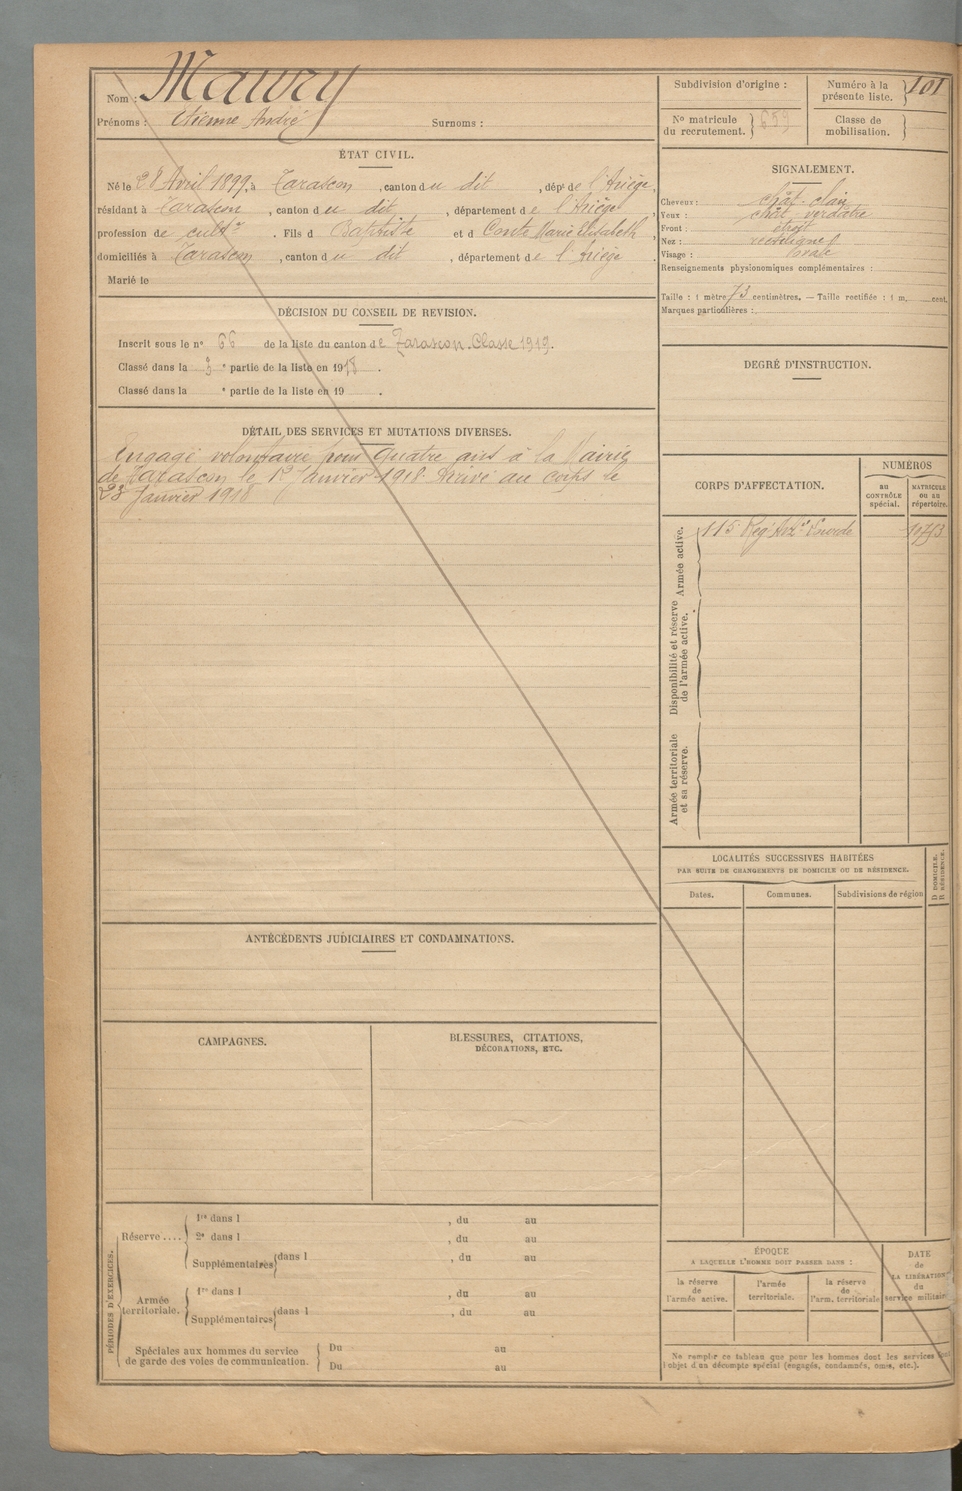 Nom : Maury
Prénoms : Etienne André Surnoms :
ÉTAT CIVIL.
Né le 28 Avril 1899, à Tarascon, canton du dit, dépt de l'Ariège,
résidant à Tarascon, canton du dit, département de l'Ariège,
profession de cultr. Fils d Baptiste et d Conte Marie Elisabeth,
domiciliés à Tarascon, canton du dit, département de l'Ariège.
Marié le
DÉCISION DU CONSEIL DE REVISION.
Inscrit sous le no 66 de la liste du canton de Tarascon. Classe 1919.
Classé dans la 3 e partie de la liste en 1918.
Classé dans la e partie de la liste en 19 .
DÉTAIL DES SERVICES ET MUTATIONS DIVERSES.
Engagé volontaire pour quatre ans à la Mairie
de Tarascon le Janvier 1918. Arrivé au corps le
23 Janvier 1918
ANTÉCÉDENTS JUDICIAIRES ET CONDAMNATIONS.
CAMPAGNES.
BLESSURES, CITATIONS,
DÉCORATIONS, ETC.
PÉRIODES D'EXERCICES.
Réserve....
1re dans l , du au
2e dans l , du au
Supplémentaires dans l , du au
Armée
territoriale.
1re dans l , du au
Supplémentaires dans l , du au
Spéciales aux hommes du service
de garde des voies de communication.
Du au
Du au
Subdivision d'origine :
Numéro à la
présente liste. 101
No matricule
du recrutement. 659
Classe de
mobilisation.
SIGNALEMENT.
Cheveux : chât-clair
Yeux : chât verdâtre
Front : étroit
Nez : rectiligne
Visage : ovale
Renseignements physionomiques complémentaires :
Taille : 1 mètre 73 centimètres. — Taille rectifiée : 1 m, cent.
Marques particulières :
DEGRÉ D'INSTRUCTION.
CORPS D'AFFECTATION.
NUMÉROS
au
CONTRÔLE
spécial.
MATRICULE
ou au
répertoire.
Armée active.
115 Regt lourde
Disponibilité et réserve
de l'armée active.
Armée territoriale
et sa réserve.
LOCALITÉS SUCCESSIVES HABITÉES
PAR SUITE DE CHANGEMENTS DE DOMICILE OU DE RÉSIDENCE.
Dates.
Communes.
Subdivisions de région
D DOMICILE.
R RÉSIDENCE.
ÉPOQUE
A LAQUELLE L'HOMME DOIT PASSER DANS :
la réserve
de
l'armée active.
l'armée
territoriale.
la réserve
de
l'arm. territoriale
DATE
de
LA LIBÉRATION
du
service militaire
Ne remplir ce tableau que pour les hommes dont les services font
l'objet d'un décompte spécial (engagés, condamnés, omis, etc.).